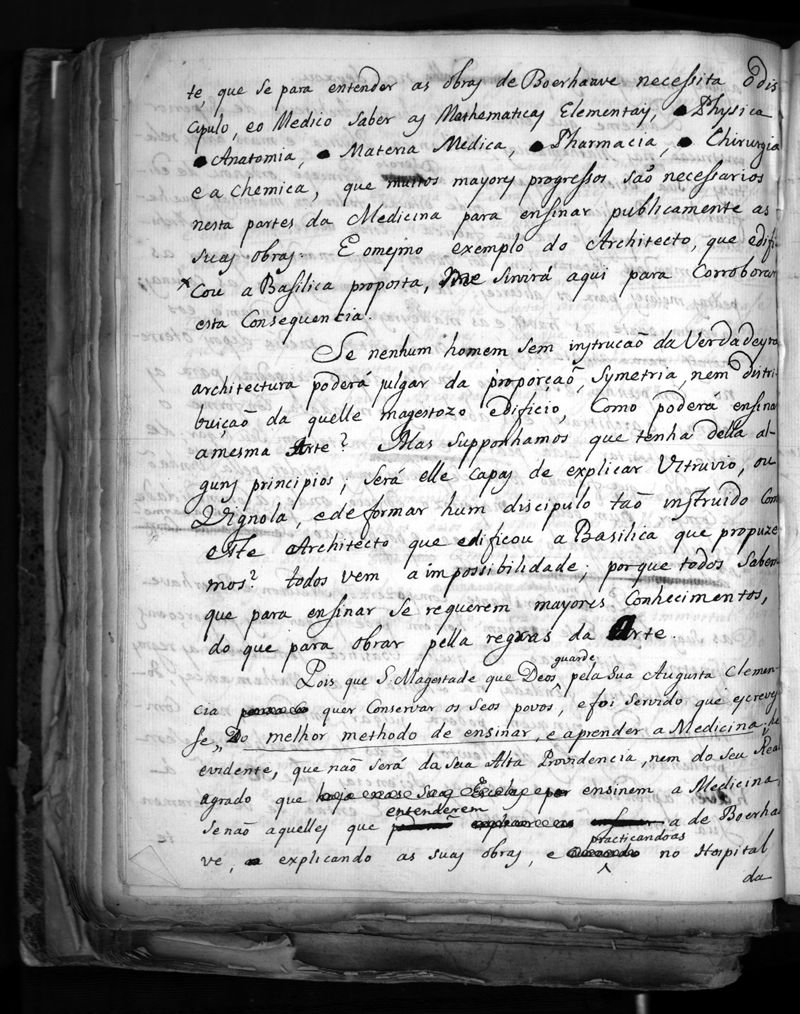 te, que se para entender as obras de Boerhaave necessita o dis
cipulo, e o Medico saber as Mathematicas Elementays, Physica
Anatomia, Materia Medica, Pharmacia, Chirurgia
e a Chemica, que muitos mayores progressos saõ necessarios
nesta partes da Medicina para ensinar publicamente as
suas obras. E o mesmo exemplo do Architecto, que edifi-
cou a Basilica proposta, me sirvirá aqui para Corroborar
esta Consequencia.
Se nenhum homem sem instrucaõ da Verdadeyra
architectura poderá julgar da proporçaõ, Symetria, nem distri-
buiçaõ da quelle magestozo edificio, Como poderá ensina
a mesma Arte? Mas supponhamos que tenha della al-
guns principios; será elle capas de explicar Vitruvio, ou
Vignola, e de formar hum discipulo taõ instruido Com
este Architecto que edificou a Basilica que propuze
mos? todos vem a impossibilidade; porque todos Sabem
que para ensinar se requerem mayores Conhecimentos,
do que para obrar pella regras da Arte.
guarde
Pois que S. Magestade que Deos, pela Sua Augusta Clemen-
cia quer Conservar os seos povos, e foi servido que escreves
se, Do melhor methodo de ensinar, e aprender a Medicina; he
evidente, que naõ será da Sua Alta Providencia, nem do seu Real
agrado que ensinem a Medicina,
entenderem
senaõ aquelles que a de Boerha
practicandoas
ve, explicando as suas obras, e no Hospital
da